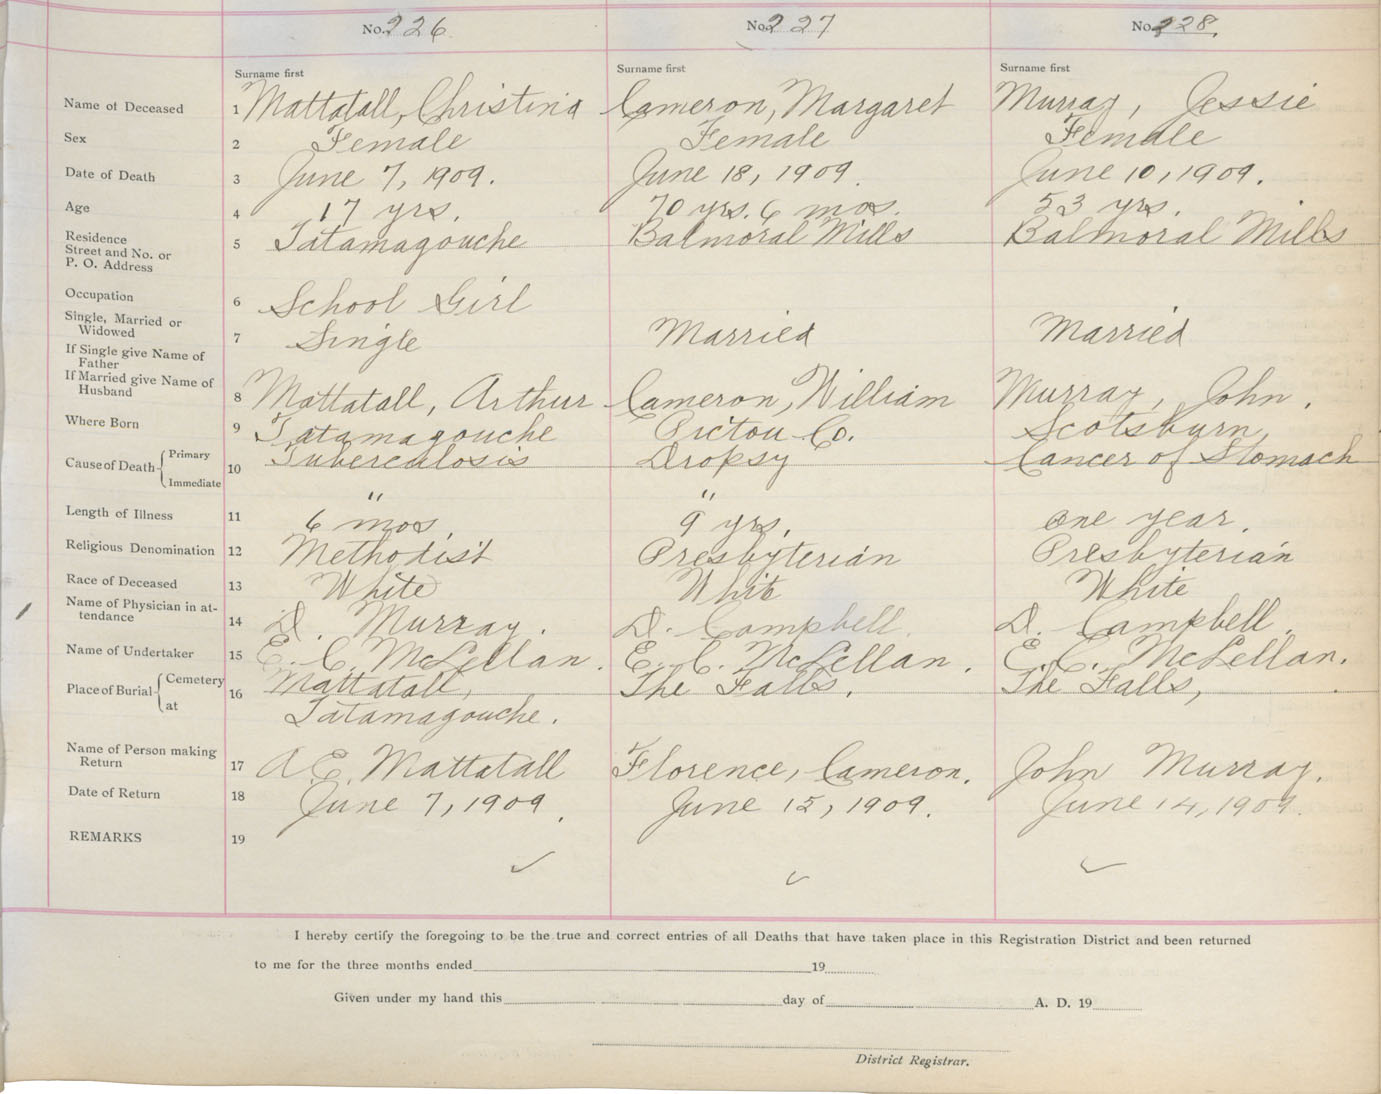 No. 226 No. 227 No. 228.
Surname first Surname first Surname first
Name of Deceased 1 Mattatall, Christina Cameron, Margaret Murray, Jessie
Sex 2 Female Female Female
Date of Death 3 June 7, 1909. June 18, 1909. June 10, 1909.
Age 4 17 yrs. 70 yrs. 6 mos. 53 yrs.
Residence
Street and No. or
P. O. Address 5 Tatamagouche Balmoral Mills Balmoral Mills
Occupation 6 School Girl
Single, Married or
Widowed 7 Single Married Married
If Single give Name of
Father
If Married give Name of
Husband 8 Mattatall, Arthur Cameron, William Murray, John.
Where Born 9 Tatamagouche Pictou Co. Scotsburn,
Cause of Death Primary 10 Tuberculosis Dropsy Cancer of Stomach
Immediate " "
Length of Illness 11 6 mos. 9 yrs. one year.
Religious Denomination 12 Methodist Presbyterian Presbyterian
Race of Deceased 13 White White White
Name of Physician in at-
tendance 14 D. Murray. D. Campbell. D. Campbell.
Name of Undertaker 15 E. C. McLellan. E. C. McLellan. E. C. McLellan.
Place of Burial Cemetery 16 Mattatall, The Falls. The Falls,
at Tatamagouche.
Name of Person making
Return 17 A. E. Mattatall Florence, Cameron. John Murray.
Date of Return 18 June 7, 1909. June 15, 1909. June 14, 1909.
REMARKS 19
I hereby certify the foregoing to be the true and correct entries of all Deaths that have taken place in this Registration District and been returned
to me for the three months ended 19
Given under my hand this day of A. D. 19
District Registrar.